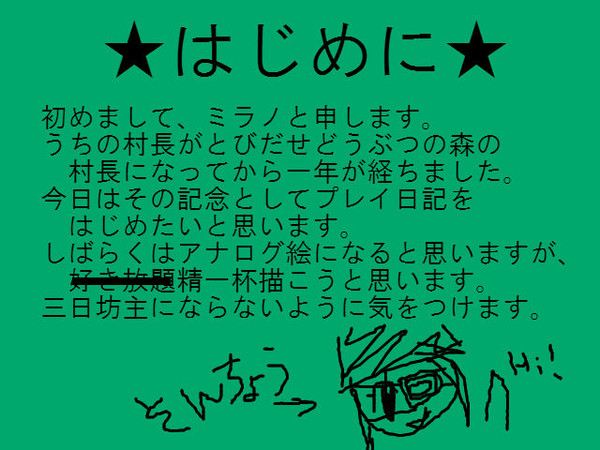 ★はじめに★
初めまして、ミラノと申します。
うちの村長がとびだせどうぶつの森の
村長になってから一年が経ちました。
今日はその記念としてプレイ日記を
はじめたいと思います。
しばらくはアナログ絵になると思いますが、
好き放題精一杯描こうと思います。
三日坊主にならないように気をつけます。
そんちょう→
Hi!